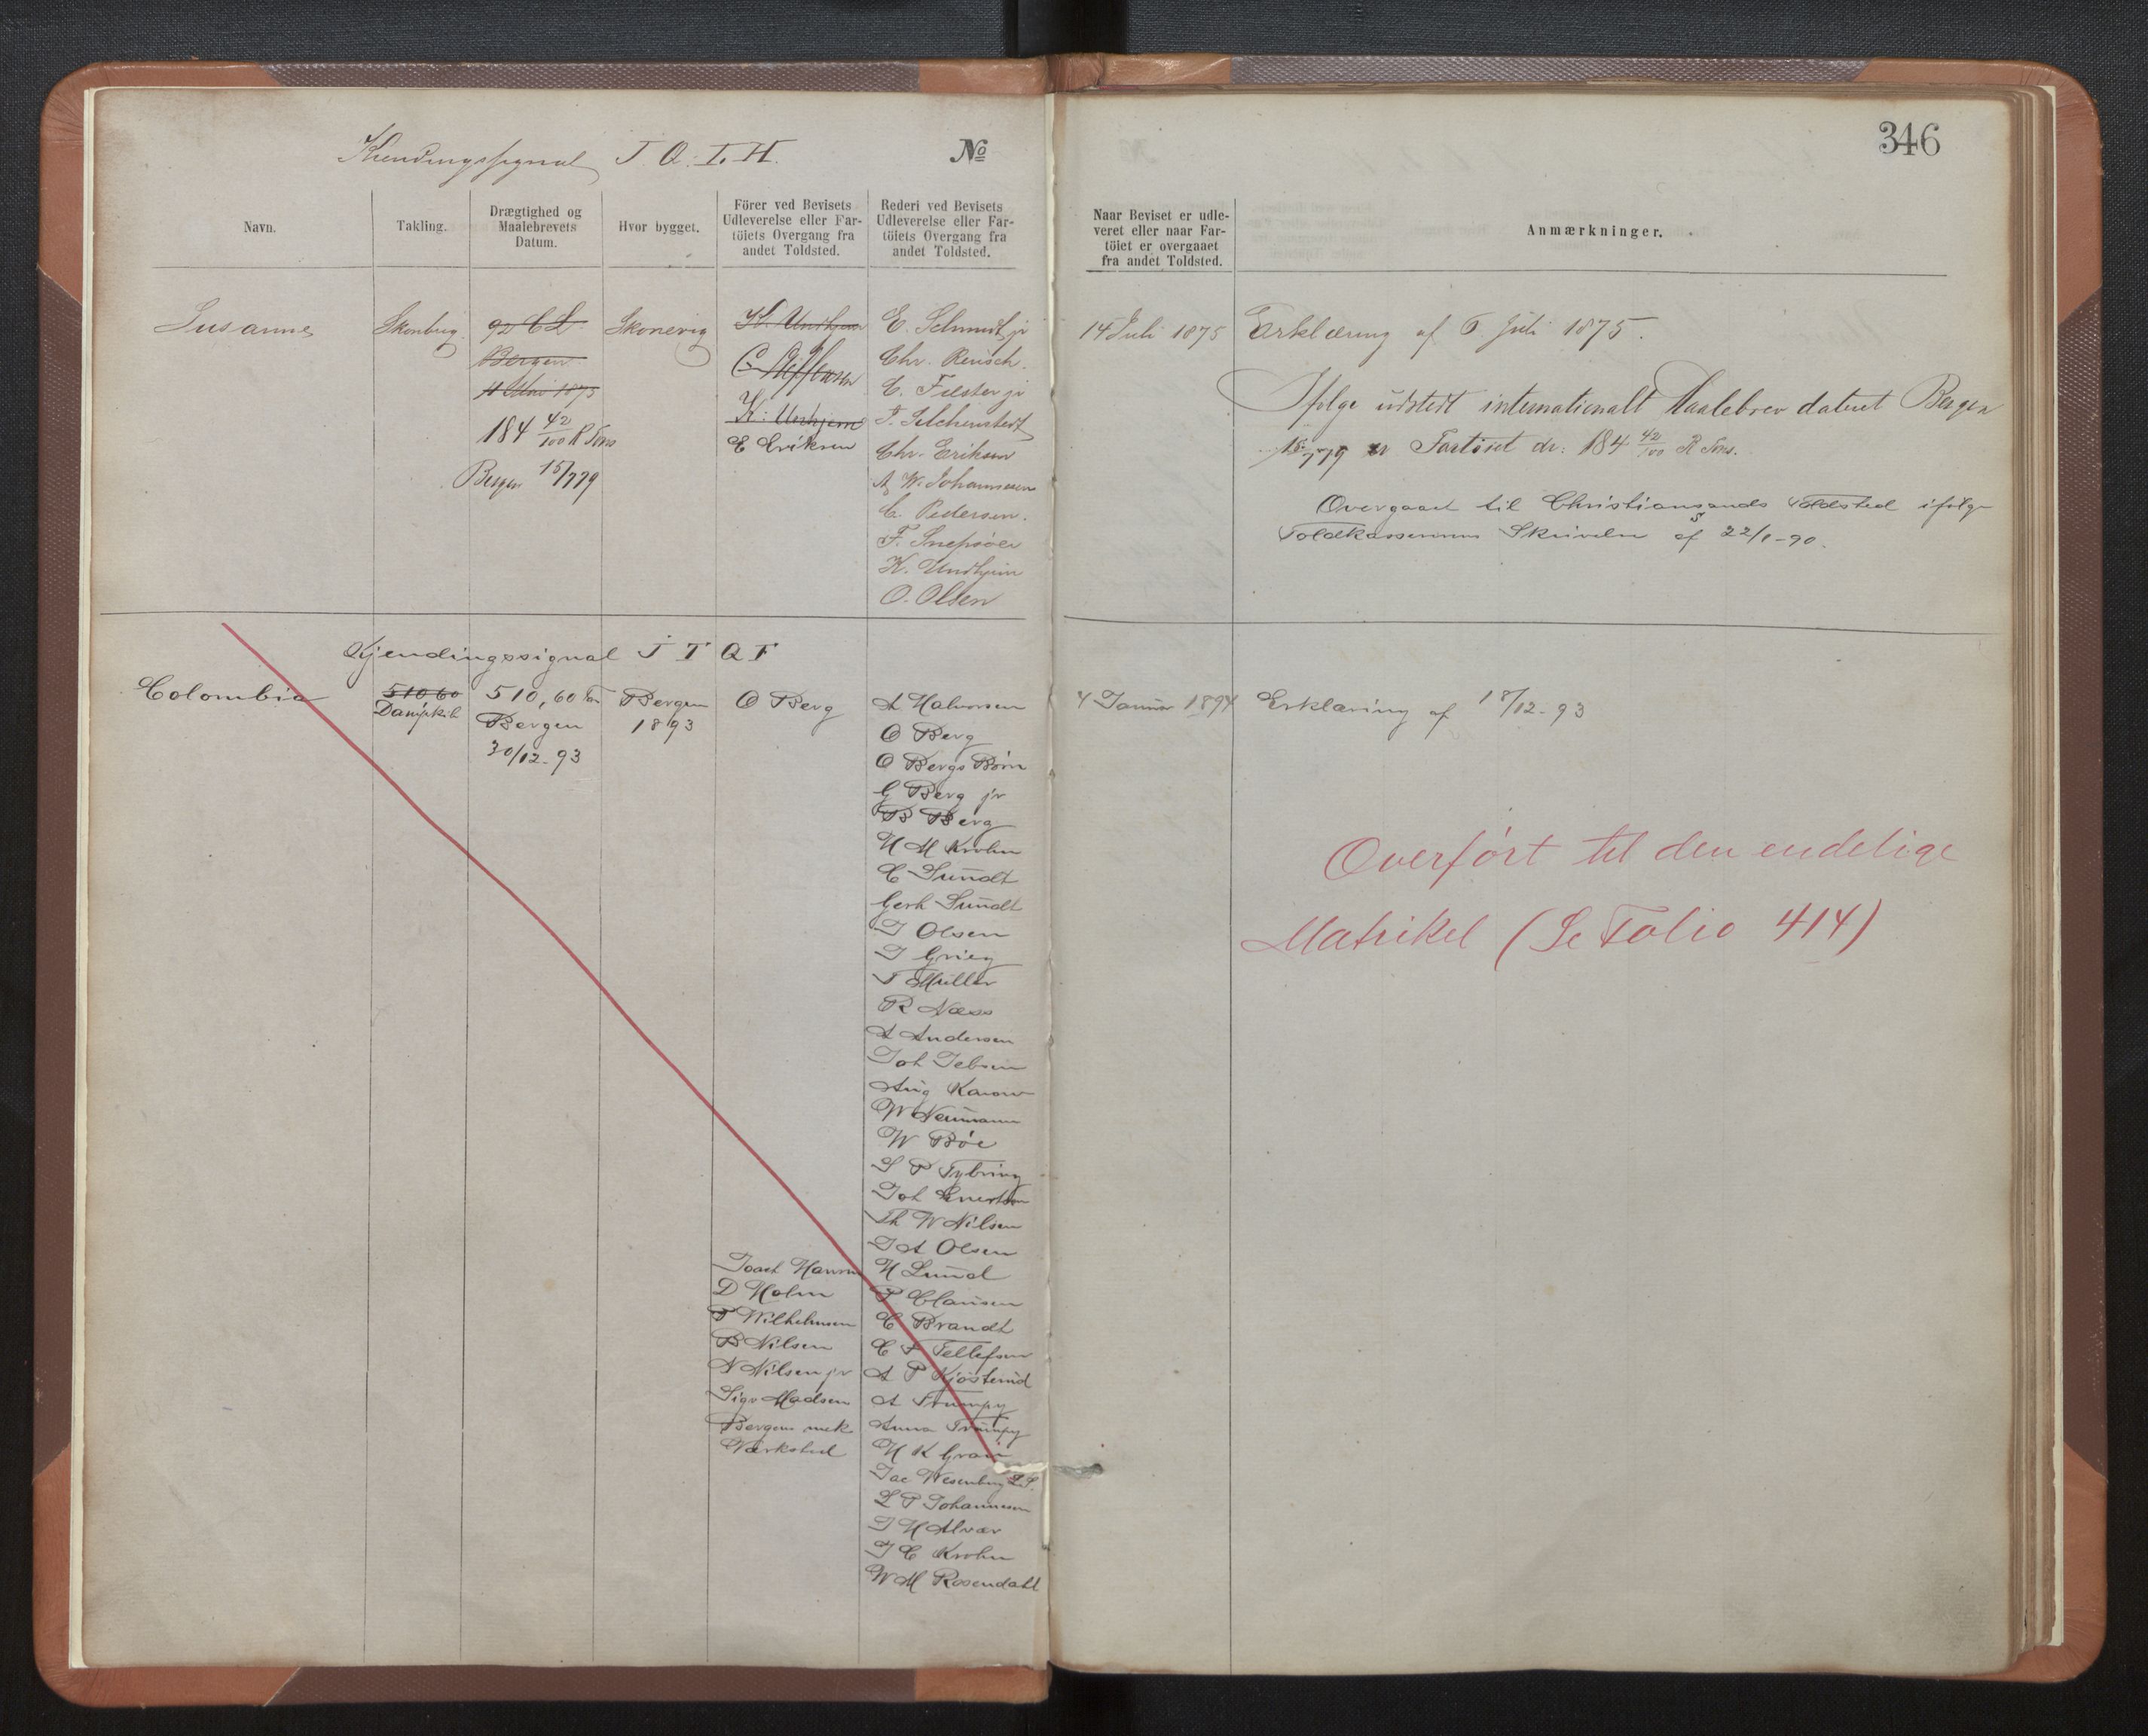 Kiendingssignal J. Q. T. H.
No
346
Navn.
Takling.
Drægtighed og
Maalebrevets
Datum.
Hvor bygget.
Förer ved Bevisets
Udleverelse eller Far-
töiets Overgang fra
andet Toldsted.
Rederi ved Bevisets
Udleverelse eller Far-
töiets Overgang fra
andet Toldsted.
Naar Beviset er udle-
veret eller naar Far-
töiet er overgaaet
fra andet Toldsted.
Anmærkninger.
Susanne
Skonbrig.
92 CL
Bergen
1875
184 42/100 R Tons
Bergen 15/7 79
Skonevig
K. Undhjem
C. Steffensen
K. Undhjem
E Eriksen
E. Schmidt jr
Chr. Reusch.
C. Felster jr
Chr. Eriksen
A W. Johannesen
C. Pedersen.
K. Undhjem
O. Olsen
14 Juli 1875
Erklæring af 6. Juli 1875.
Ifølge udstedt internationalt Maalebrev dateret Bergen
15/7 79 er Fartöiet dr: 184 42/100 R Tons.
Overgaaet til Christianssands Toldsted ifølge
Toldkassererens Skrivelse af 22/1-90.
Kjendingssignal J T Q F
Colombia
510 60
Dampskib
510,60 Ton
Bergen
30/12-93
Bergen
1893
O Berg
A Halvorsen
O Berg
O Bergs Börn
G Berg jr
B Berg
H M Krohn
C Sundt
Gerh Sundt
J Olsen
J Grieg
T Müller
R Næss
A Andersen
Joh Jebsen
Aug Kason
W Neumann
W Böe
S P Tybring
Joh
Th W Nilsen
J A Olsen
H Lund
P Clausen
C Brandt
C F Tellefsen
A P Kjösterud
A Trumpy
Anna Trumpy
H K Gran
Jac Wesenberg
L P Johannesen
J H Alver
J C Krohn
W M Rosendahl
Joach Hansen
D Holm
T Wilhelmsen
B Nilsen
N Nilsen jr
Sigv Madsen
Bergens mek
Værksted
4 Januar 1894
Erklæring af 18/12-93
Overfört til den endelige
Matrikel (Se Folio 414)